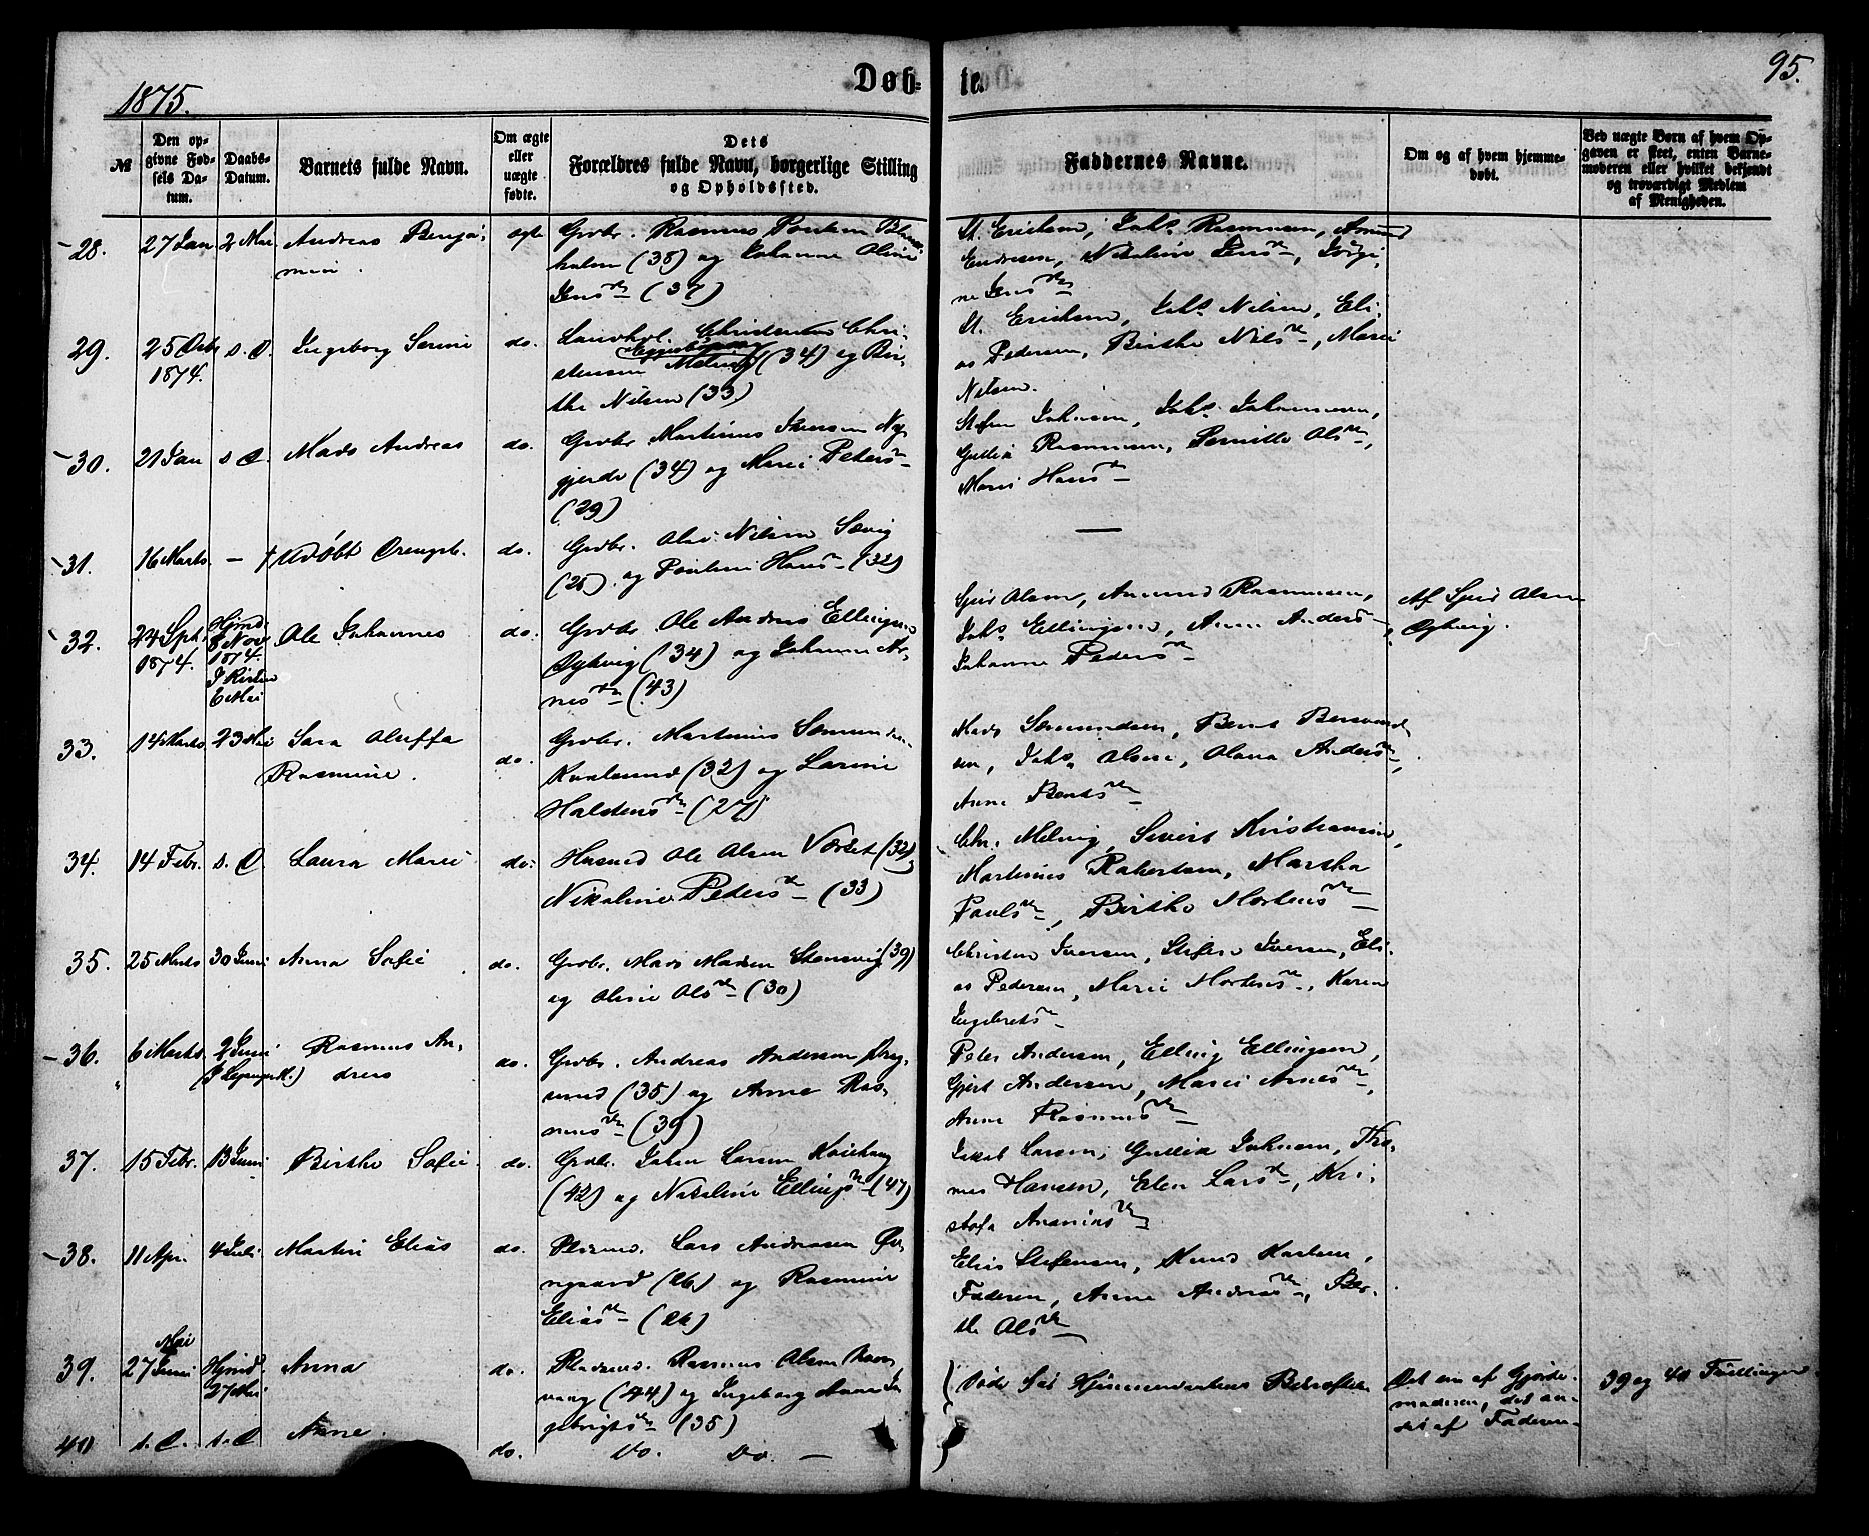 1875.
Døbte.
95.
№
Den opgivne Fødsels Datum.
Daabs-Datum.
Barnets fulde Navn.
Om ægte eller uægte fødte.
Dets Forældres fulde Navn, borgerlige Stilling og Opholdssted.
Faddernes Navne.
Om og af hvem hjemmedøbt.
Ved uægte Børn af hvem Opgaven er skeet, enten Barnemoderen eller hvilket bekjendt og troværdigt Medlem af Menigheden.
28. 27 Jan 2 Mai Andreas Benja-
min.
ægte Grbr. Rasmus Poulsen
holm (38) og Johanne Oline
Jensdtr (37)
St. Ericksen, Johs Rasmussen, Amund
Endresen, Nikoline Jensdtr, Jørgi-
ne Jensdtr
29. 25 Octr 1874. s. D. Ingeborg Serine
do. Christensen Chri-
stensen (34) og Bir-
the Nilsen (33)
St. Ericksen, Johs Nilsen, Eli-
as Pedersen, Birthe Nilsdtr, Marie
Nilsen.
30. 21 Jan s D. Mads Andreas
do. Grbr Martinus Iversen Ny-
gjerde (34) og Marie Petersdtr
(29)
Stefen Johnsen, Johs Johannesen,
Gullik Rasmussen, Pernille Olsdtr,
Marie Hansdtr
31. 16 Marts. — † Udøbt Drengeb.
do. Grbr. Ole Nilsen Sævig
(28) og Pouline Hansdtr (32)
—
32. 24 Sept. 1874. Hjmd. 8 Nov 1874. I Kirken 6 Mai
Ole Johannes
do. Grbr. Ole Andreas Ellingsen
Dykvig (34) og Johanne Ar-
nesdtr (43)
Sjur Olsen, Amund Rasmussen,
Johs Ellingsen, Anne Andersdtr,
Johanne Pedersdtr
Af Sjur Olsen
Dykvig.
33. 14 Marts 23 Mai Sara Oluffa
Rasmine.
do. Grbr. Martinus Sæmundsen
Kvalsund (32) og Larine
Halstensdtr (27)
Mads Sæmundsen, Bernt Bersvend-
sen, Johs Olsen, Olava Andersdtr,
Anne Berntsdtr
34. 14 Febr. s. D Laura Marie
do. Husmd Ole Olsen Vorset (32)
Nikoline Pedersdtr (33)
Chr. Melvig, Sivert Kristiansen,
Martinus Robertsen, Martha
Poulsdtr, Birthe Mortensdtr
35. 25 Marts 30 Juni Anna Sofie
do. Grbr. Mads Madsen Stensvig (39)
og Oline Olsdtr (30)
Christen Iversen, Stefen Iversen, Eli-
as Pedersen, Marie Mortensdtr, Karen
Ingebretsdtr
36. 6 Marts. 2 Juni Rasmus An-
dreas
do. Grbr. Andreas Andersen Drag-
sund (35) og Anne Ras-
musdtr (39)
Peter Andersen, Elling Ellingsen,
Gjert Andersen, Marie Arnesdtr,
Anne Rasmusdtr
37. 15 Febr. 13 Juni Birthe Sofie.
do. Grbr. Johan Larsen
(42) og Nikoline Ellingsdtr (47)
Jakob Larsen, Gullik Johnsen, Tho-
mas Hansen, Elen Larsdtr, Kri-
stofa Ananiasdtr
38. 11 Apr. 4 Juli Martin Elias
do. Pladsmd. Lars Andreasen Øv-
regaard (26) og Rasmine
Eliasdtr (26)
Elias Stefensen, Knud Karlsen,
Faderen, Anne Andreasdtr, Ber-
the Olsdtr
39. 27 Mai Juni Hjmd. 27 Mai Anna
do. Pladsmd. Rasmus Olsen
(44) og Ingeborg Anne In-
gebrigtsdtr (35)
Døde før Hjemmedaabens Bekræftelse
Det ene af Gjorde-
moderen, det an-
det af Faderen
39 og 40 Tvillinger
40 s. D. s. D Anne.
do. Do. Do. —